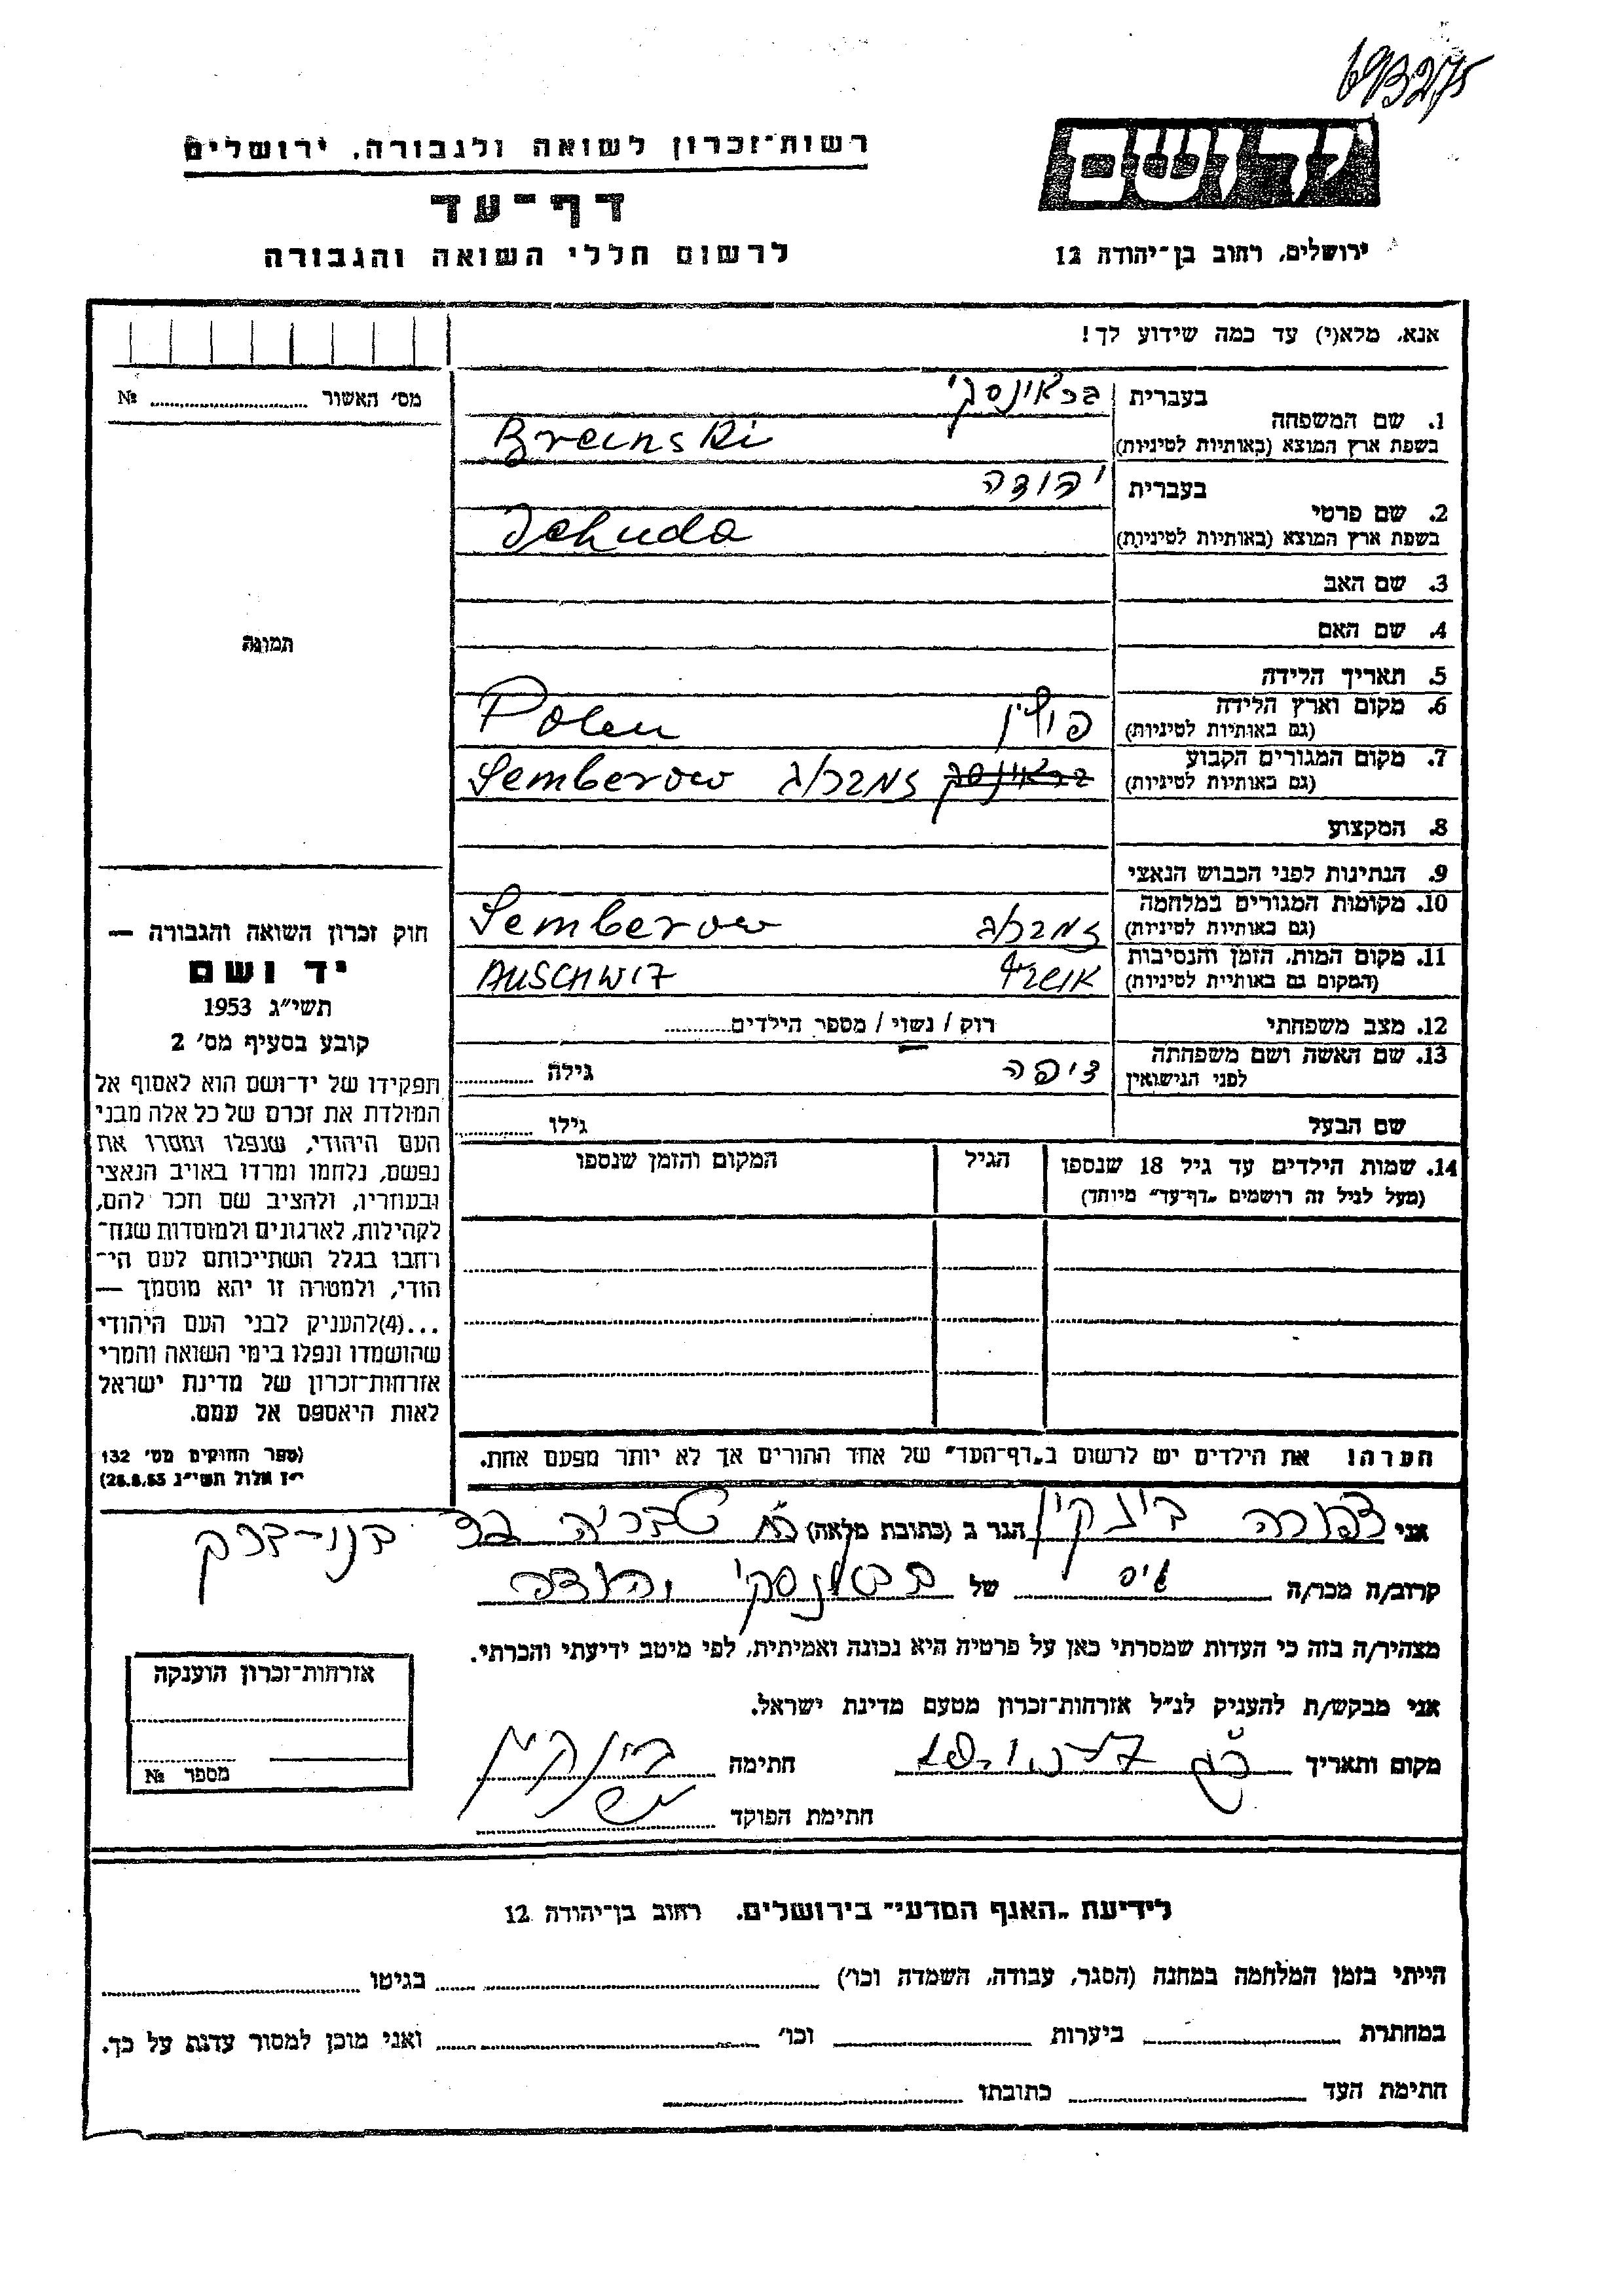 693275
יד ושם
ירושלים, רחוב בן-יהודה 12
רשות-זכרון לשואה ולגבורה, ירושלים
דף-עד
לרשום חללי השואה והגבורה
אנא, מלא(י) עד כמה שידוע לך!
מס׳ האשור № ..........
1. שם המשפחה
בעברית בראינסקי
בשפת ארץ המוצא (באותיות לטיניות) Breinski
2. שם פרטי
בעברית יהודה
בשפת ארץ המוצא (באותיות לטיניות) Jehuda
3. שם האב
4. שם האם
5. תאריך הלידה
6. מקום וארץ הלידה
(גם באותיות לטיניות) פולין Polen
7. מקום המגורים הקבוע
(גם באותיות לטיניות) Semberow
8. המקצוע
9. הנתינות לפני הכבוש הנאצי
10. מקומות המגורים במלחמה
(גם באותיות לטיניות) Semberow
11. מקום המות, הזמן והנסיבות
(המקום גם באותיות לטיניות) AUSCHWIZ
12. מצב משפחתי רוק / נשוי / מספר הילדים..........
13. שם האשה ושם משפחתה
לפני הנישואין ציפה גילה ..........
שם הבעל גילו ..........
14. שמות הילדים עד גיל 18 שנספו
(מעל לגיל זה רושמים „דף-עד״ מיוחד)
הגיל
המקום והזמן שנספו
תמונה
חוק זכרון השואה והגבורה —
יד ושם
תשי״ג 1953
קובע בסעיף מס׳ 2
תפקידו של יד-ושם הוא לאסוף אל
המולדת את זכרם של כל אלה מבני
העם היהודי, שנפלו ומסרו את
נפשם, נלחמו ומרדו באויב הנאצי
ובעוזריו, ולהציב שם וזכר להם,
לקהילות, לארגונים ולמוסדות שנח־
רבו בגלל השתייכותם לעם הי־
הודי, ולמטרה זו יהא מוסמך —
...(4)להעניק לבני העם היהודי
שהושמדו ונפלו בימי השואה והמרי
אזרחות-זכרון של מדינת ישראל
לאות היאספם אל עמם.
(ספר החוקים מס׳ 132
י״ז אלול תשי״ג 28.8.53)
הערה! את הילדים יש לרשום ב„דף-העד״ של אחד ההורים אך לא יותר מפעם אחת.
אני הגר ב (כתובת מלאה) טבריה בני-ברק
קרוב/ה מכר/ה גיס של יהודה
מצהיר/ה בזה כי העדות שמסרתי כאן על פרטיה היא נכונה ואמיתית, לפי מיטב ידיעתי והכרתי.
אני מבקש/ת להעניק לנ״ל אזרחות-זכרון מטעם מדינת ישראל.
מקום ותאריך חתימה
חתימת הפוקד
אזרחות-זכרון הוענקה
מספר №
לידיעת „האנף המדעי״ בירושלים, רחוב בן-יהודה 12
הייתי בזמן המלחמה במחנה (הסגר, עבודה, השמדה וכו׳) .......... בגיטו ..........
במחתרת .......... ביערות .......... וכו׳ .......... ואני מוכן למסור עדות על כך.
חתימת העד .......... כתובתו ..........